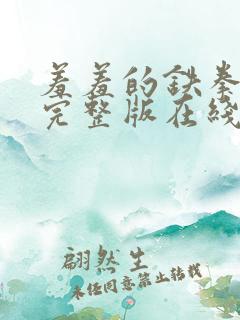 羞羞的铁拳
完整版在线
翩然生
未经同意禁止转载